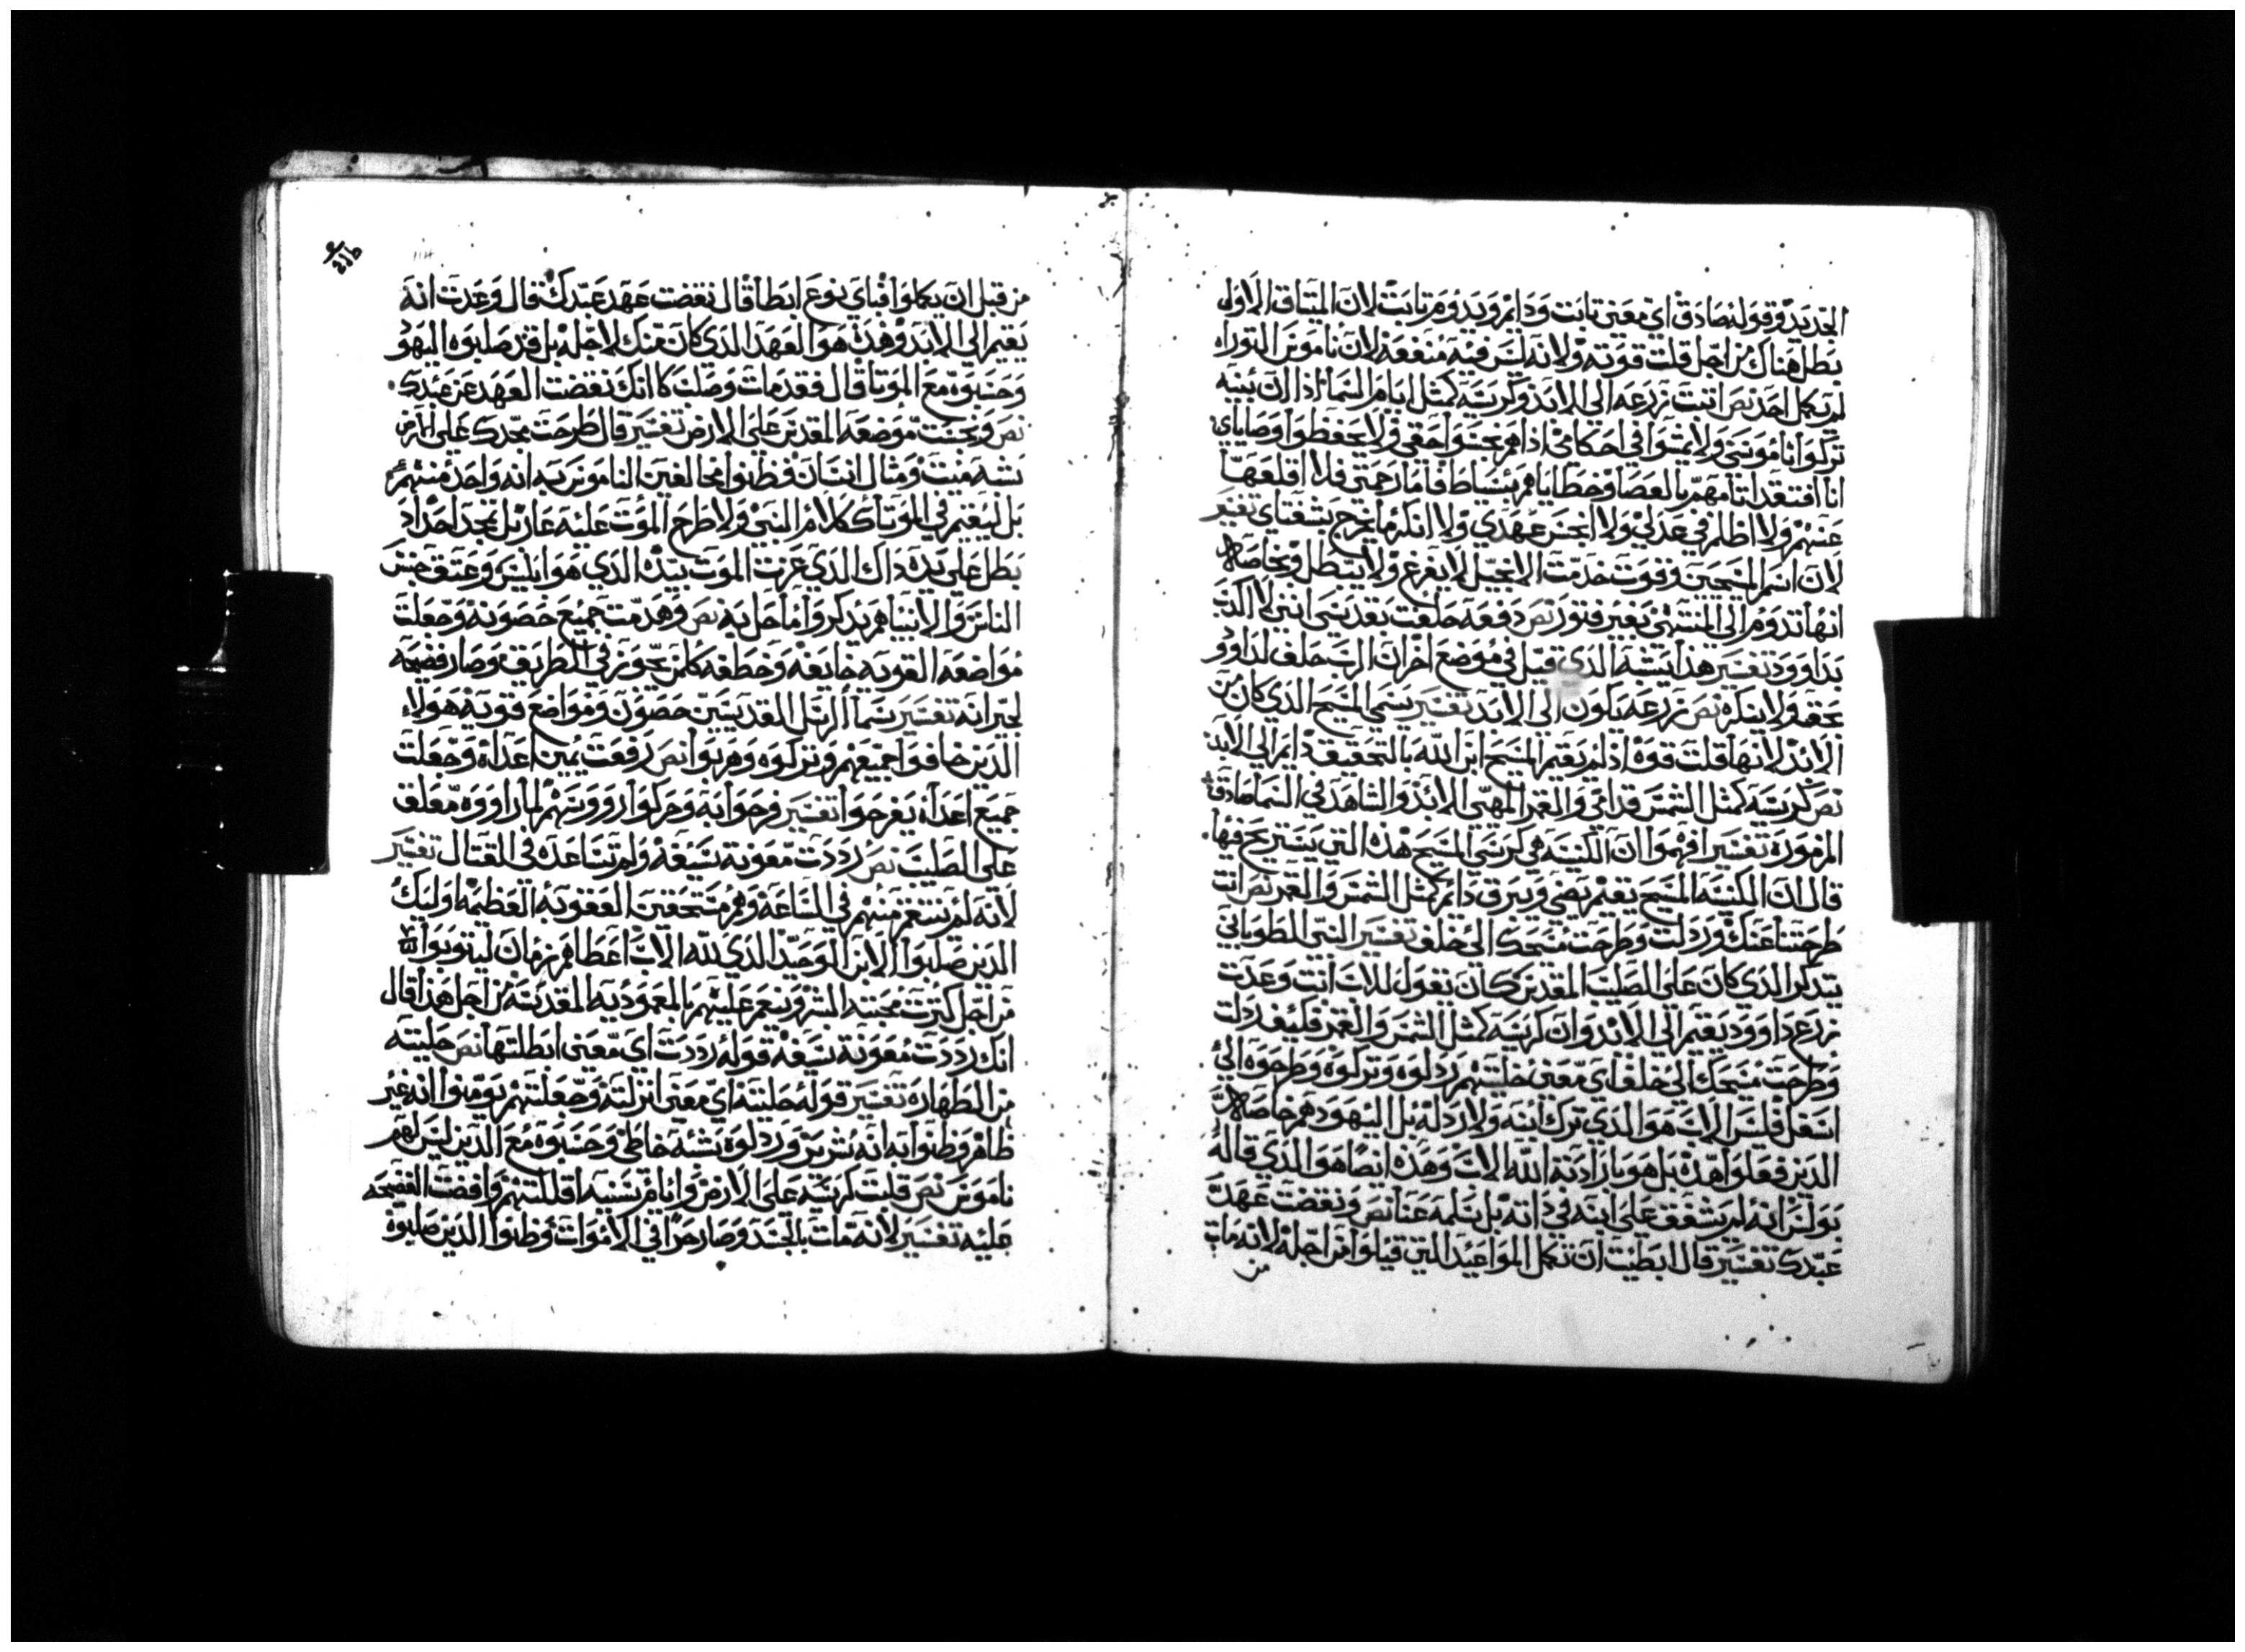 الجديد وقوله صادق اي معني تابت ودايم ويدوم تابت لان الميتاق الاول
بطل هناك من اجل قلت قوته ولانه ليس فيه منفعه لان ناموس التوراه
لم يكمل احد نص اتبت زرعه الي الابد وكرسيه كمتل ايام السما اذا ان بنيه
تركوا ناموسي ولا يمشوا في احكامي اذا هم نجسوا حقي ولا يحفظوا وصاياي
انا افتقد اتامهم بالعصا وخطاياهم بسياط فاما رحمتي فلا اقلعها
عنهم ولا اظلم في عدلي ولا انجس عهدي ولا انكر ما يخرج بشفتاي تفسير
لان اسم المسيحيين وقوت خدمت الانجيل لا يفرغ ولا يبتطل وبخاصه
انها تدوم الي المنتهي بغير فتور نص دفعه حلفت بقدسي انني لا اكدب
بداوود تفسير هذا يشبه الدي قيل في موضع اخر ان الرب حلف لداوود
بحق ولا ينكره نص زرعه يكون الي الابد تفسير يسمي المسيح الدي كان من
الابد لانها قلت قوه اذ لم يقيم المسيح ابن الله بالتحقيق دايم الي الابد
نص كرسيه كمتل الشمس قدامي والقمر المهيى الي الابد والشاهد في السما صادق
المزموره تفسير افهموا ان الكنيسه هي كرسي المسيح هذه التي يستريح فيها.
قال ان الكنيسه المسيح يقيم يضي ويبرق دايم كمتل الشمس والقمر نص انت
طرحتنا عنك ورذلت وطرحت مسيحك الي خلف تفسير النبي الطوباني
يتدكر الدي كان علي الصليب المقدس كان يقول للاب انت وعدت
زرع داوود يقيم الي الابد وان كرسيه كمتل الشمس والقمر فكيف ردلت
وطرحت مسيحك الي خلف اي معني خليتهم ردلوه وتركوه وطرحوه الي
اسفل فليس الاب هو الدي ترك ابنه ولا ردله بل اليهود هم خاصه
الدين فعلوا هده بل هو بارادته الله الاب وهذه ايضا هو الدي قاله
بولس انه لم يشفق علي ابنه في داته بل سلمه عنا نص ونقضت عهد
عبدك تفسير قال ابطيت ان تكمل المواعيد التي قيلوا من اجله لانه مات
من
من قبل ان يكملوا فباي نوع ابطا قال نقضت عهد عبدك قال وعدت انه
يقيم الي الابد وهدا هو العهد الدي كان عنك لاجله بل قد صلبوه اليهود
وحسبوه مع الموتا قال فقد مات وصلب كانك نقضت العهد عن عبدك.
نص ونجست موضعه المقدس علي الارض تفسير قال طرحت مجدك علي الارض
نشبه ميت ومتال انسان فظنوا مخالفين الناموس به انه واحد منهم
بل ليقيم في الموتا ككلام النبي ولا طرح الموت عليه عار بل مجد احد اد
بطل علي يده داك الدي عزت الموت بيده الدي هو ابليس وعتق جنس
الناس والانبيا هم يدكروا ما حل به نص وهدمت جميع حصونه وجعلت
مواضعه القويه خايفه وخطفه كلمن يجوز في الطريق وصار فضيحه
لجيرانه تفسير يسما الرسل القديسين حصون ومواضع قويه هولاء
الدين خافوا جميعهم وتركوه وهربوا نص رفعت يمين اعداه وجعلت
جميع اعداه يفرحوا تفسير فرحوا به وحركوا رووسهم لما راووه معلق
علي الصليب نص رددت معونة سيفه ولم تساعده في القتال تفسير
لانه لم ينتقم منهم في الساعه وهم مستحقين العقوبه العظيمه اوليك
الدين صلبوا الابن الوحيد الدي لله الاب اعطاهم زمان ليتوبوا
من اجل كترت محبته البشر وينعم عليهم بالمعموديه المقدسه من اجل هذا قال
انك رددت معونة سيفه قوله رددت اي معني ابطلتها نص حليته
من الطهاره تفسير قوله حليته اي معني انزلته وجعلتهم يومنوا انه غير
طاهر وظنوا به انه شرير وردلوه نشبه خاطي وحسبوه مع الدين ليس لهم
ناموس نص قلبت كرسيه علي الارض وايام سنيه اقللتهم وافضت الفضيحه
عليه تفسير لانه مات بالجسد وصار حرا في الاموات وظنوا الدين صلبوه